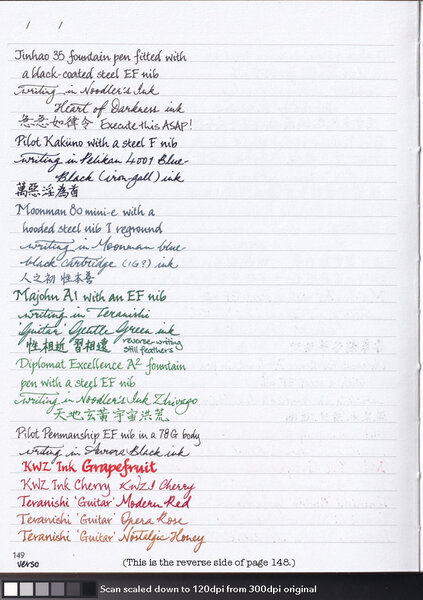 / /
Jinhao 35 fountain pen fitted with
a black-coated steel EF nib
writing in Noodler's Ink
Heart of Darkness ink
急急如律令 Execute this ASAP!
Pilot Kakuno with a steel F nib
writing in Pelikan 4001 Blue-
Black (iron-gall) ink
萬惡淫為首
Moonman 80 mini-e with a
hooded steel nib I reground
writing in Moonman blue-
black cartridge (IG?) ink
人之初 性本善
Majohn A1 with an EF nib
writing in Teranishi
'Guitar' Gentle Green ink
性相近 習相遠 reverse-writing
still feathers
Diplomat Excellence A² fountain
pen with a steel EF nib
writing in Noodler's Ink Zhivago
天地玄黃 宇宙洪荒
Pilot Penmanship EF nib in a 78G body
writing in Aurora Black ink
KWZ Ink Grapefruit
KWZ Ink Cherry KWZI Cherry
Teranishi 'Guitar' Modern Red
Teranishi 'Guitar' Opera Rose
Teranishi 'Guitar' Nostalgic Honey
149
verso
(This is the reverse side of page 148.)
Scan scaled down to 120dpi from 300dpi original